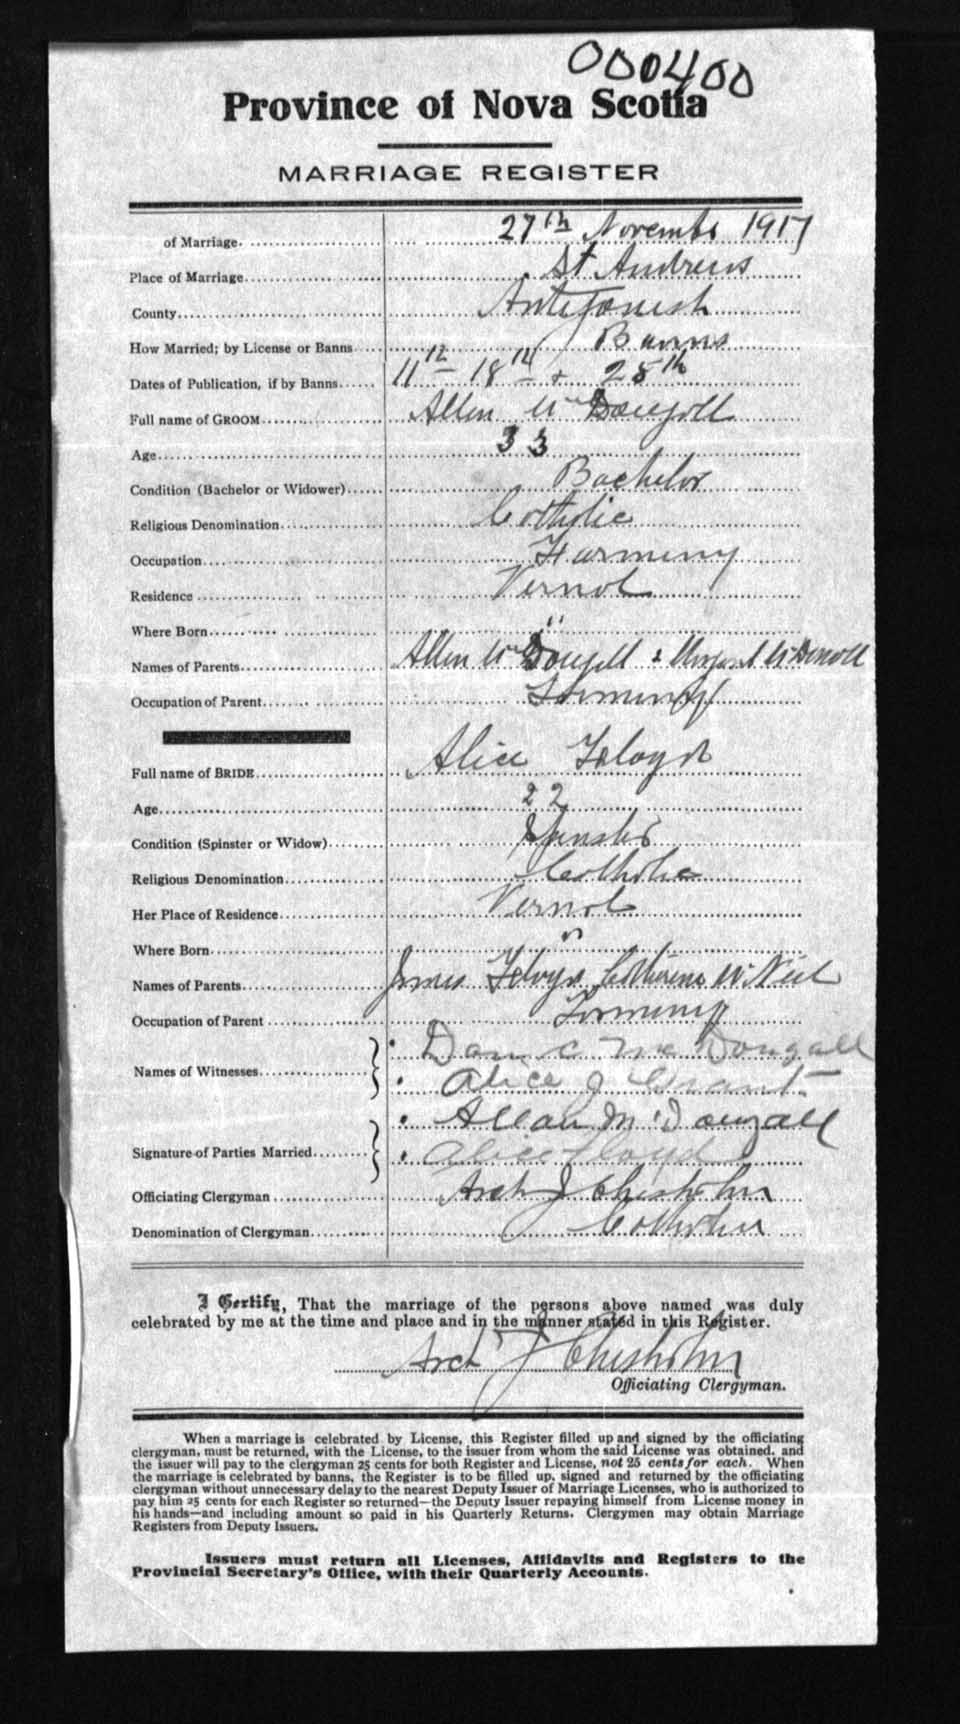 000400
Province of Nova Scotia
MARRIAGE REGISTER
of Marriage. 27th November 1917
Place of Marriage St Andrews
County Antigonish
How Married; by License or Banns Banns
Dates of Publication, if by Banns 11th 18th + 25th
Full name of GROOM Allen McDougall
Age 33
Condition (Bachelor or Widower) Bachelor
Religious Denomination Catholic
Occupation Farming
Residence Vernol
Where Born "
Names of Parents Allen McDougall & Margaret
Occupation of Parent Farming
Full name of BRIDE Alice Floyd
Age 22
Condition (Spinster or Widow) Spinster
Religious Denomination Catholic
Her Place of Residence Vernol
Where Born "
Names of Parents James Floyd Catherine McNeil
Occupation of Parent Farming
Names of Witnesses Dan C McDougall
Alice J Grant
Signature of Parties Married Allan McDougall
Alice Floyd
Officiating Clergyman Arch J Chisholm
Denomination of Clergyman
I Certify, That the marriage of the persons above named was duly
celebrated by me at the time and place and in the manner stated in this Register.
Arch J Chisholm
Officiating Clergyman.
When a marriage is celebrated by License, this Register filled up and signed by the officiating
clergyman, must be returned, with the License, to the issuer from whom the said License was obtained, and
the issuer will pay to the clergyman 25 cents for both Register and License, not 25 cents for each. When
the marriage is celebrated by banns, the Register is to be filled up, signed and returned by the officiating
clergyman without unnecessary delay to the nearest Deputy Issuer of Marriage Licenses, who is authorized to
pay him 25 cents for each Register so returned—the Deputy Issuer repaying himself from License money in
his hands—and including amount so paid in his Quarterly Returns. Clergymen may obtain Marriage
Registers from Deputy Issuers.
Issuers must return all Licenses, Affidavits and Registers to the
Provincial Secretary's Office, with their Quarterly Accounts.